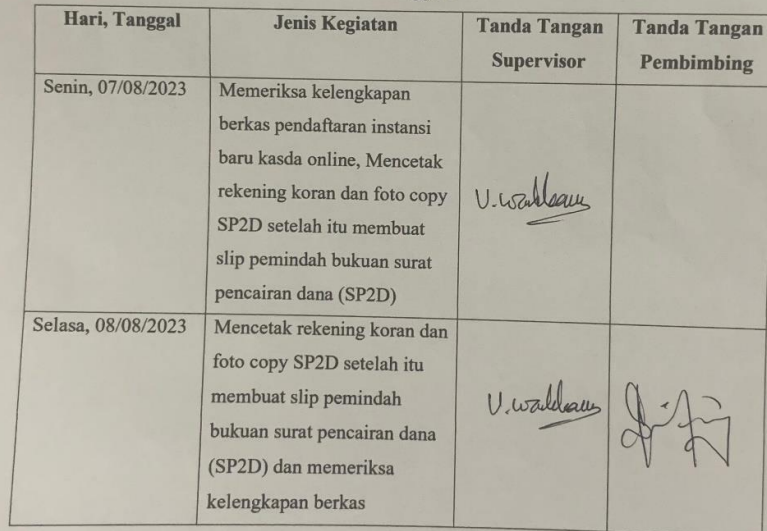 Hari, Tanggal
Jenis Kegiatan
Tanda Tangan
Supervisor
Tanda Tangan
Pembimbing
Senin, 07/08/2023
Memeriksa kelengkapan
berkas pendaftaran instansi
baru kasda online, Mencetak
rekening koran dan foto copy
SP2D setelah itu membuat
slip pemindah bukuan surat
pencairan dana (SP2D)
Selasa, 08/08/2023
Mencetak rekening koran dan
foto copy SP2D setelah itu
membuat slip pemindah
bukuan surat pencairan dana
(SP2D) dan memeriksa
kelengkapan berkas